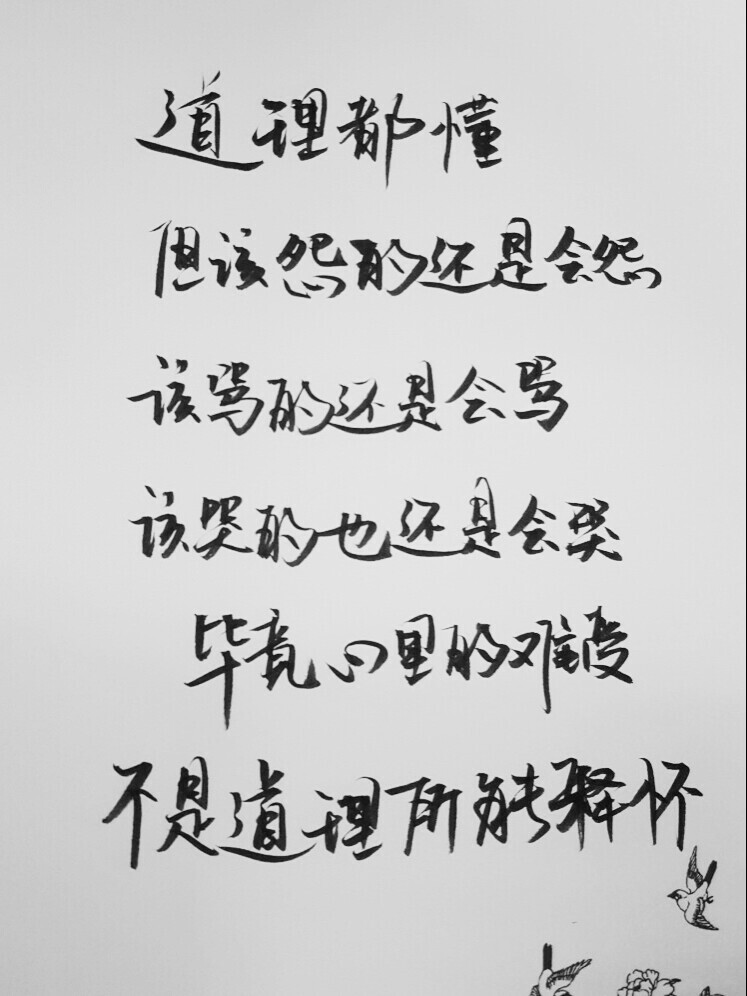 道理都懂
但该怨的还是会怨
该骂的还是会骂
该哭的也还是会哭
毕竟心里的难受
不是道理所能释怀